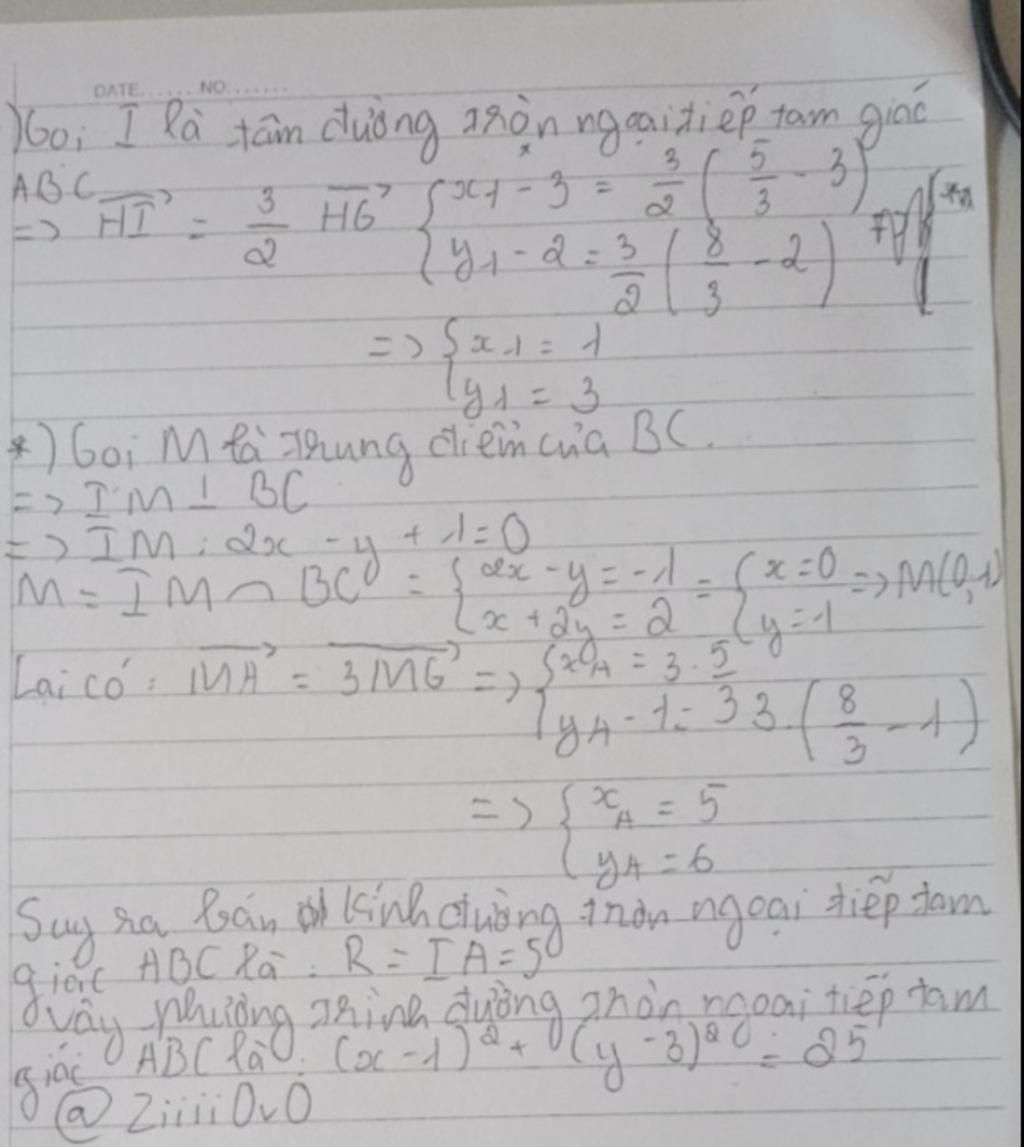 DATE...... NO.......
) Gọi I là tâm đường tròn ngoại tiếp tam giác
ABC
=> HI = 3/2 HG { x1 - 3 = 3/2 ( 5/3 - 3 )
{ y1 - 2 = 3/2 ( 8/3 - 2 )
=> { x1 = 1
{ y1 = 3
*) Gọi M là trung điểm của BC.
=> IM ⊥ BC
=> IM : 2x - y + 1 = 0
M = IM ∩ BC = { 2x - y = -1 = { x = 0 => M(0,1)
{ x + 2y = 2 { y = 1
Lại có : MA = 3MG => { xA = 3 . 5/3
{ yA - 1 = 3 . ( 8/3 - 1 )
=> { xA = 5
{ yA = 6
Suy ra bán kính đường tròn ngoại tiếp tam
giác ABC là : R = IA = 5
vậy phương trình đường tròn ngoại tiếp tam
giác ABC là : (x - 1)² + (y - 3)² = 25
@ Ziiii0v0